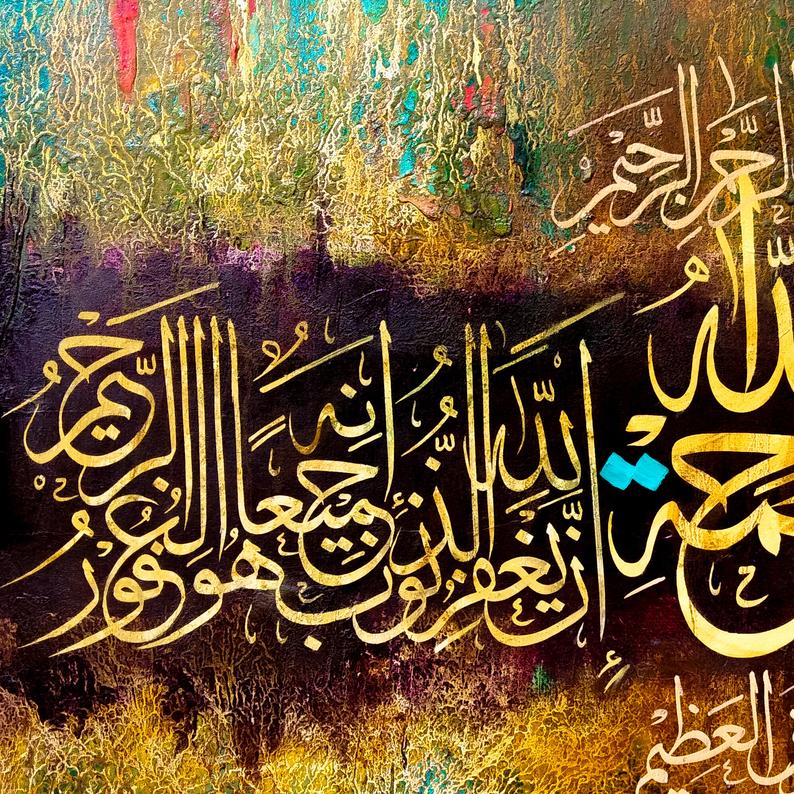 الرحمن الرحيم
الله
حمة
إن الله يغفر الذنوب جميعاً إنه هو الغفور الرحيم
العظيم